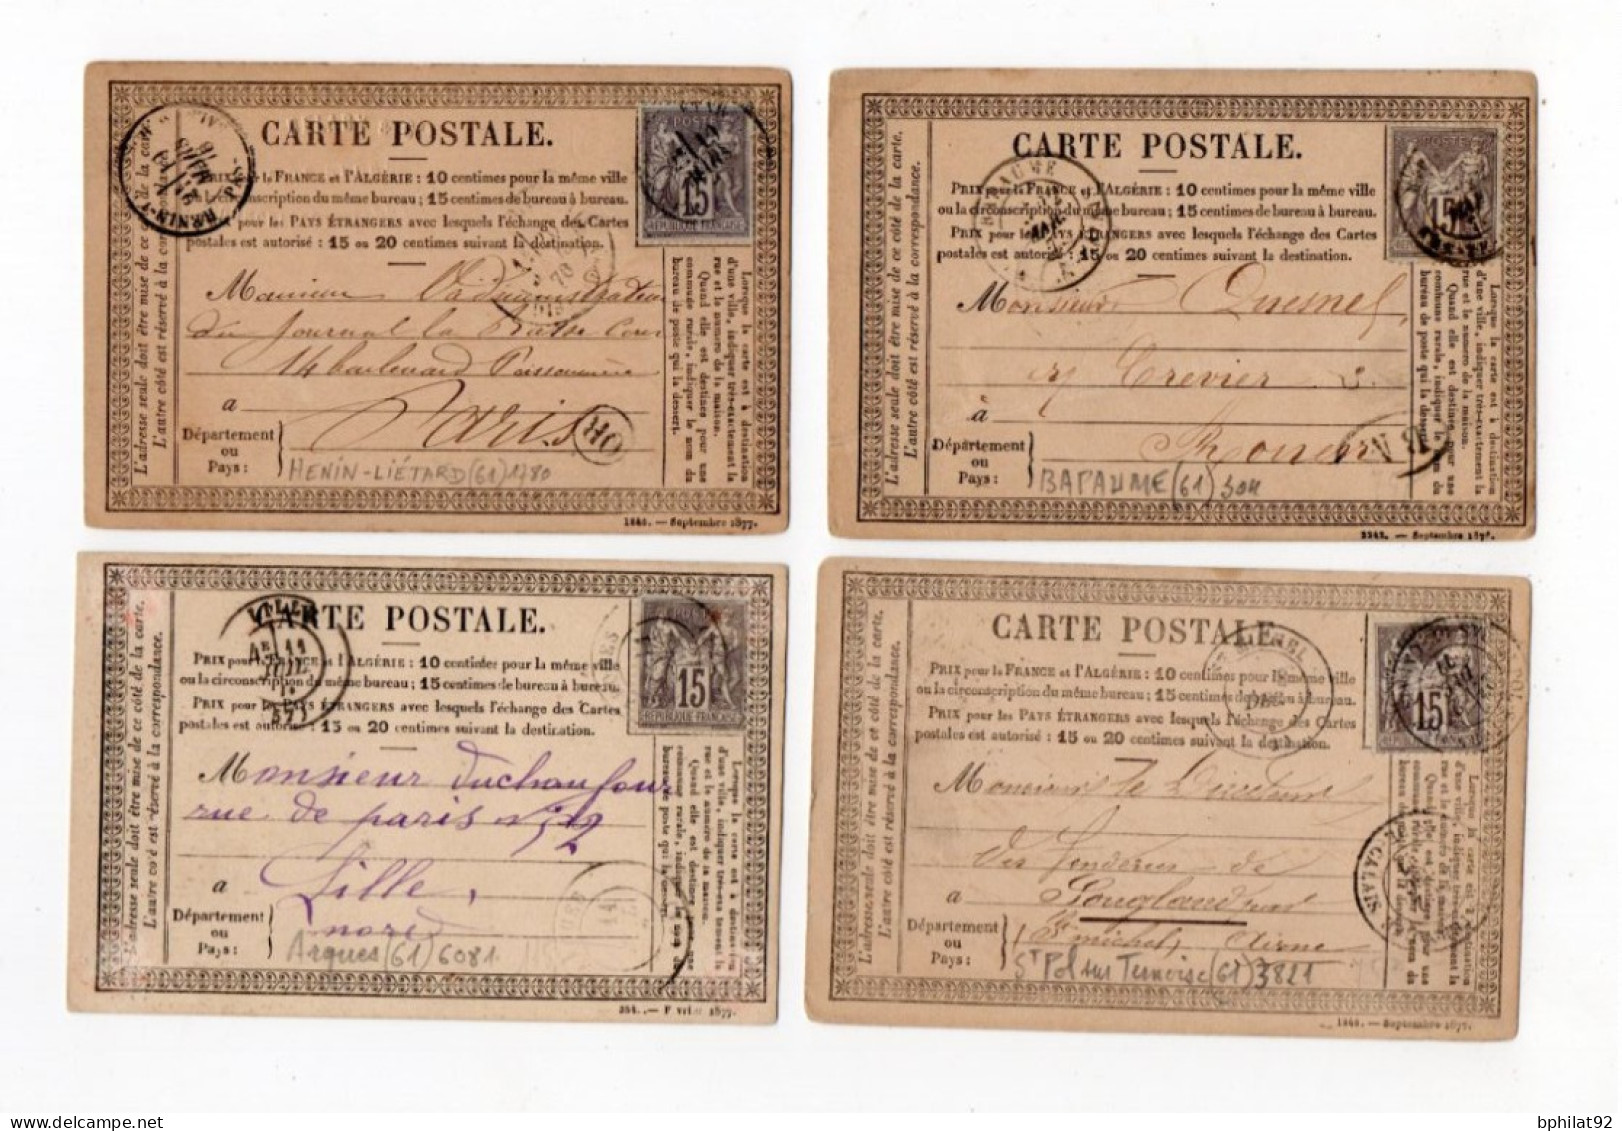 CARTE POSTALE.
PRIX pour la FRANCE et l'ALGÉRIE : 10 centimes pour la même ville
ou la circonscription du même bureau ; 15 centimes de bureau à bureau.
PRIX pour les PAYS ÉTRANGERS avec lesquels l'échange des Cartes
postales est autorisé : 15 ou 20 centimes suivant la destination.
L'adresse seule doit être mise de ce côté de la carte.
L'autre côté est réservé à la correspondance.
Lorsque la carte est à destination
d'une ville, indiquer très-exactement la
rue et le numéro de la maison.
Quand elle est destinée pour une
commune rurale, indiquer le nom du
bureau de poste qui la dessert.
POSTES
15
REPUBLIQUE FRANÇAISE
Monsieur l'administrateur
du Journal la Basse Cour
14 boulevard Poissonnière
a Paris
OR
Département
ou
Pays :
HENIN-LIÉTARD (61) 1780
1846. — Septembre 1877.
CARTE POSTALE.
PRIX pour la FRANCE et l'ALGÉRIE : 10 centimes pour la même ville
ou la circonscription du même bureau ; 15 centimes de bureau à bureau.
PRIX pour les PAYS ÉTRANGERS avec lesquels l'échange des Cartes
postales est autorisé : 15 ou 20 centimes suivant la destination.
L'adresse seule doit être mise de ce côté de la carte.
L'autre côté est réservé à la correspondance.
Lorsque la carte est à destination
d'une ville, indiquer très-exactement la
rue et le numéro de la maison.
Quand elle est destinée pour une
commune rurale, indiquer le nom du
bureau de poste qui la dessert.
15
Monsieur Quesnel
r/ Crevier 3.
à Rouen
Département
ou
Pays :
BAPAUME (61) 304
Septembre 1878.
CARTE POSTALE.
PRIX pour la FRANCE et l'ALGÉRIE : 10 centimes pour la même ville
ou la circonscription du même bureau ; 15 centimes de bureau à bureau.
PRIX pour les PAYS ÉTRANGERS avec lesquels l'échange des Cartes
postales est autorisé : 15 ou 20 centimes suivant la destination.
L'adresse seule doit être mise de ce côté de la carte.
L'autre côté est réservé à la correspondance.
Lorsque la carte est à destination
d'une ville, indiquer très-exactement la
rue et le numéro de la maison.
Quand elle est destinée pour une
commune rurale, indiquer le nom du
bureau de poste qui la dessert.
LILLE
15
REPUBLIQUE FRANÇAISE
Monsieur Duchaufour
rue de paris n° 52
a Lille,
nord
Département
ou
Pays :
Arques (61) 6081
254. — Février 1877.
CARTE POSTALE.
PRIX pour la FRANCE et l'ALGÉRIE : 10 centimes pour la même ville
ou la circonscription du même bureau ; 15 centimes de bureau à bureau.
PRIX pour les PAYS ÉTRANGERS avec lesquels l'échange des Cartes
postales est autorisé : 15 ou 20 centimes suivant la destination.
L'adresse seule doit être mise de ce côté de la carte.
L'autre côté est réservé à la correspondance.
15
Monsieur le Directeur
des Fonderies de
a Sougland par
St michel, Aisne
Département
ou
Pays :
St Pol sur Ternoise (61) 3821
1846. — Septembre 1877.
bphilat92